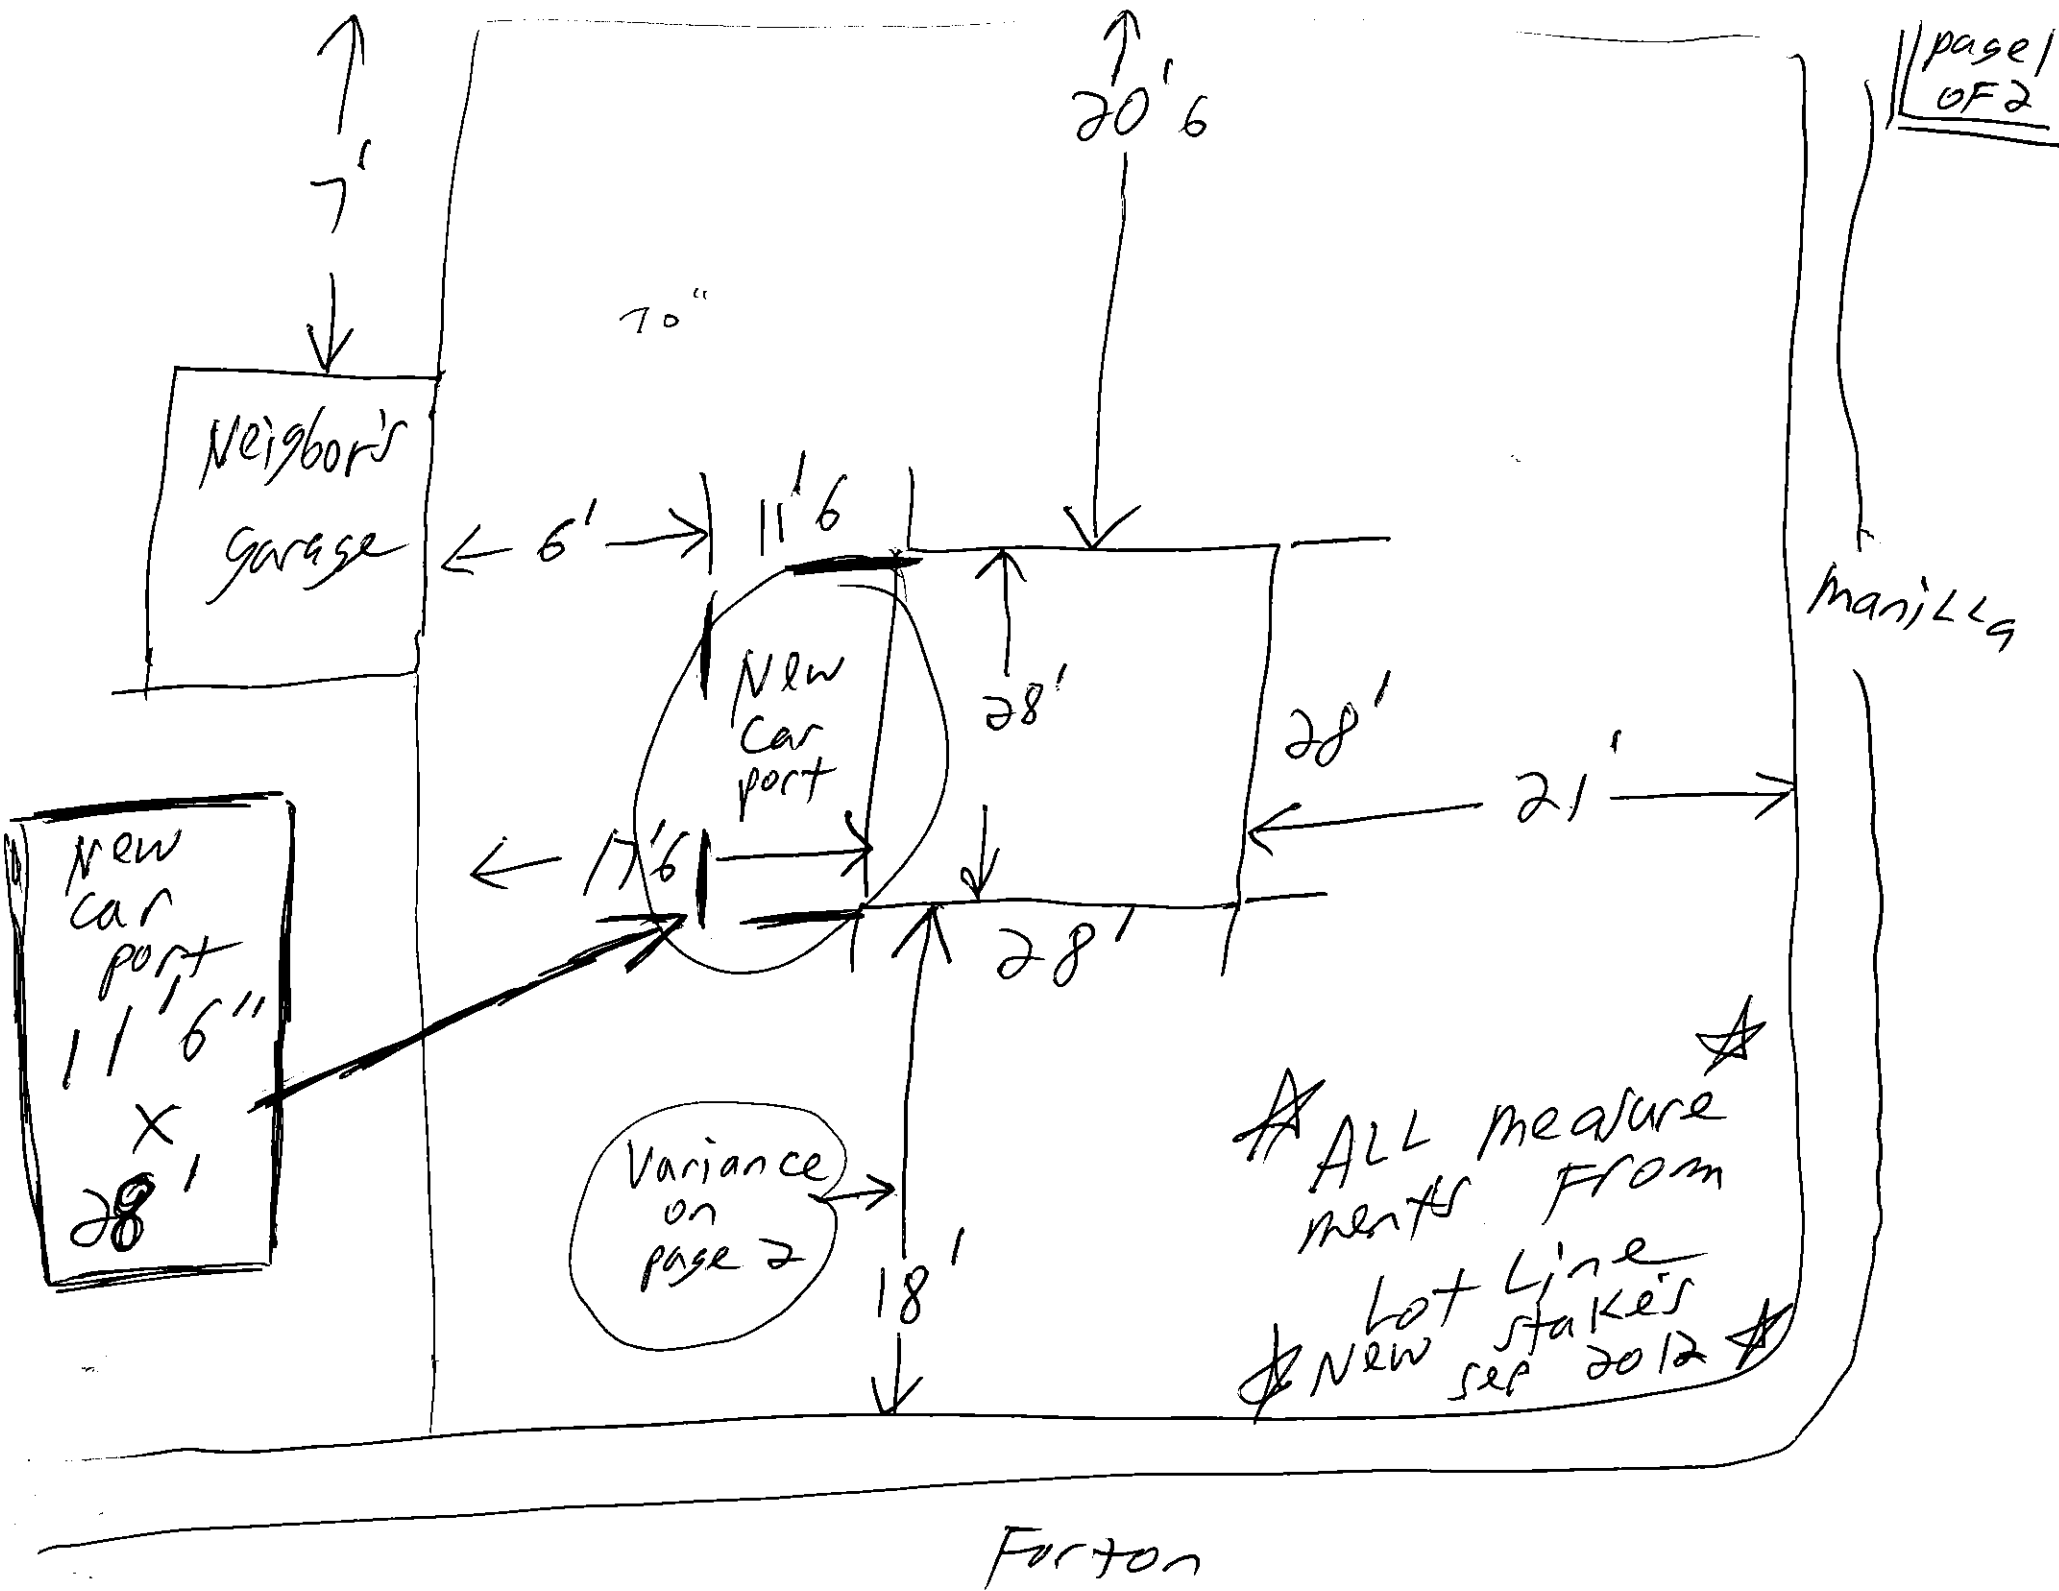 page 1
of 2
20'6
7'
70"
Neigbor's
garage
6'
11'6
Manilla
New
car
port
28'
28'
21'
17'6
28'
New
car
port
11'6"
X
28'
Variance
on
page 2
18'
ALL measure
ments From
Lot Line
New stakes
sep 2012
Forton